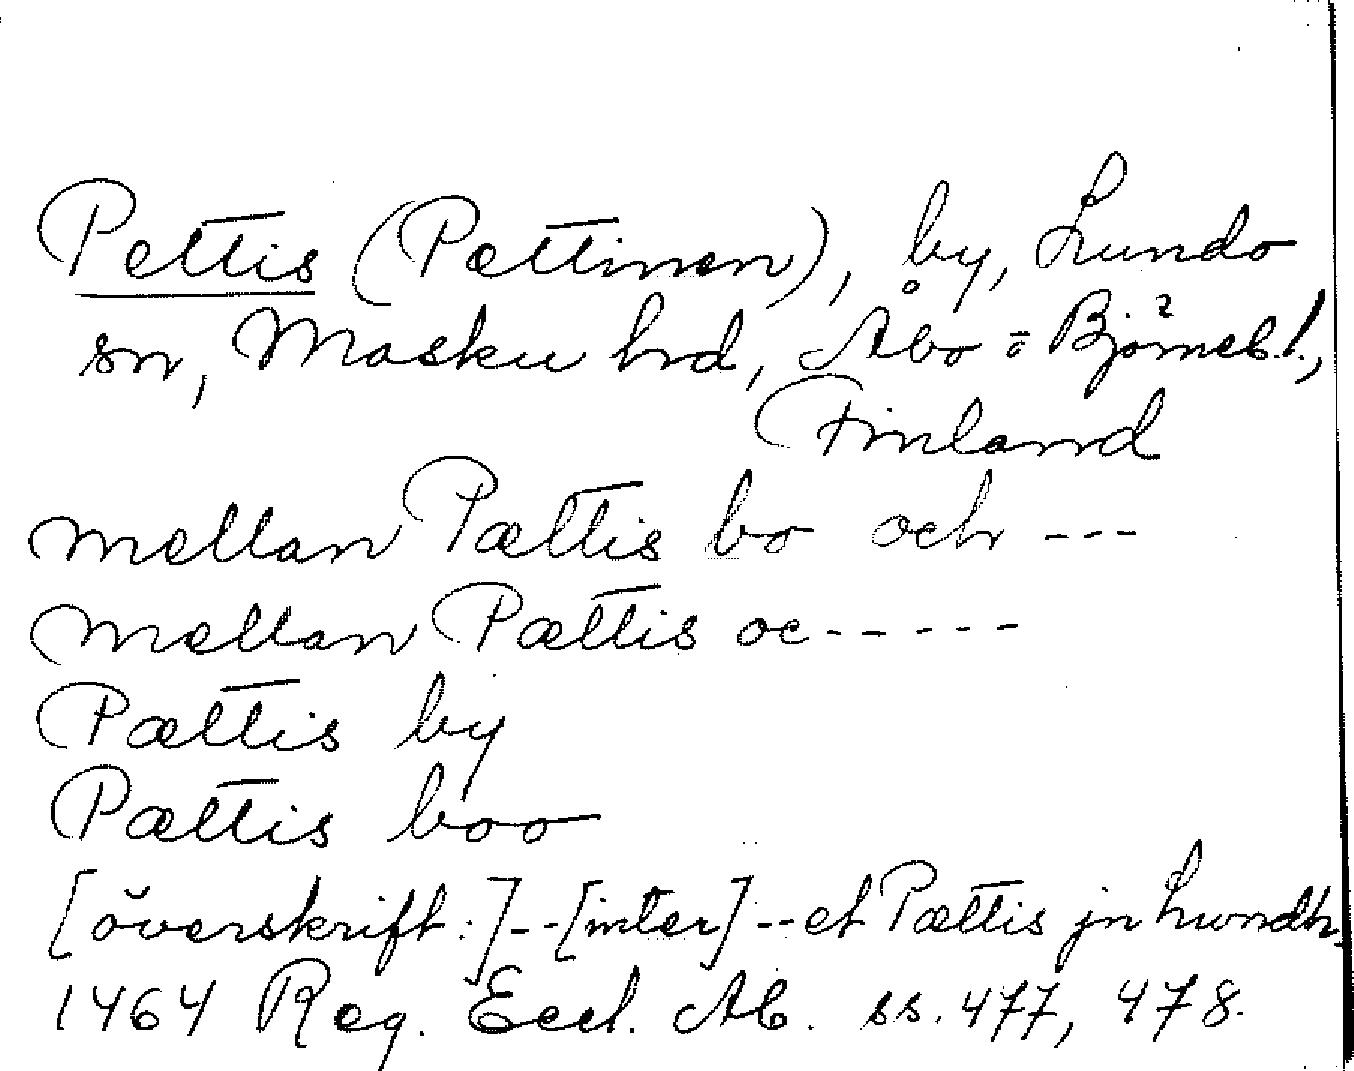 Pettis (Pættinen), by, Lundo
sn, Masku hd, Åbo-o Björneb.l.,
Finland
mellan Pættis bo och ---
mellan Pættis oc-----
Pættis by
Pættis boo
[överskrift:]--[inter]--et Pættis jn Lwndh.
1464 Reg. Eccl. Ab. ss. 477, 478.